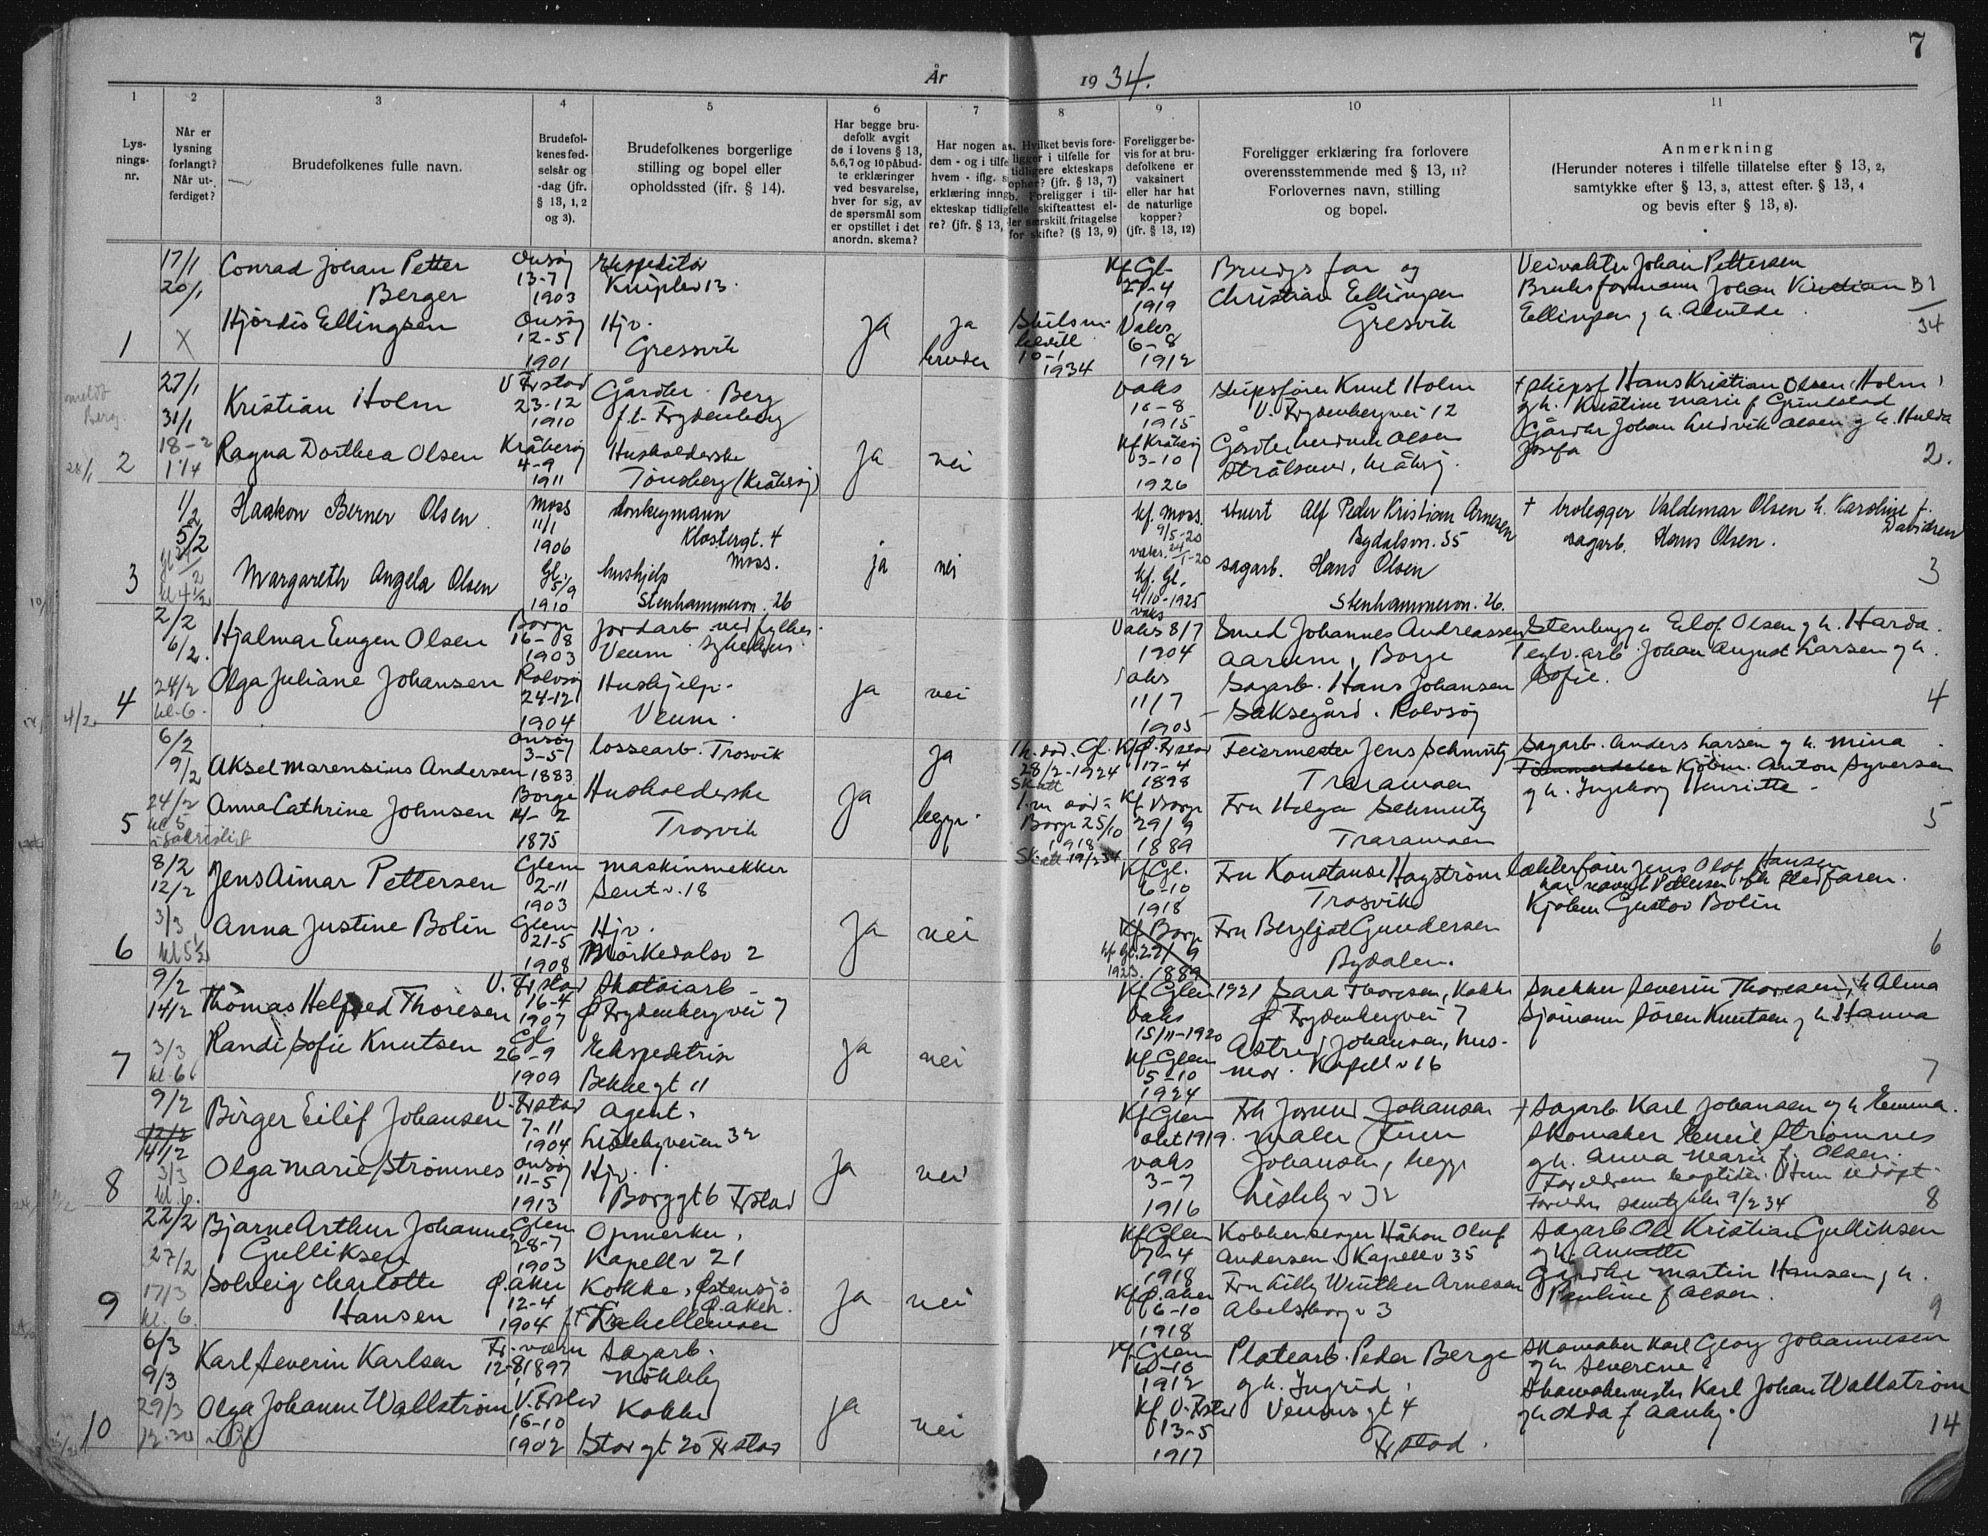 7
År 1934.
1
2
3
4
5
6
7
8
9
10
11
Lys-
nings-
nr.
Når er
lysning
forlangt?
Når ut-
ferdiget?
Brudefolkenes fulle navn.
Brudefol-
kenes fød-
selsår og
-dag (jfr.
§ 13, 1, 2
og 3).
Brudefolkenes borgerlige
stilling og bopel eller
opholdssted (ifr. § 14).
Har begge bru-
defolk avgit
de i lovens § 13,
5,6,7 og 10 påbud-
te erklæringer
ved besvarelse,
hver for sig, av
de spørsmål som
er opstillet i det
anordn. skema?
Har nogen a
dem - og i tilfe
hvem - iflg. s
erklæring inng
ekteskap tidlig
re? (jfr. § 13,
Hvilket bevis fore-
ligger i tilfelle for
tidligere ekteskaps
ophør? (jfr. § 13, 7)
b. Foreligger i til-
felle skifteattest el-
ler særskilt fritagelse
for skifte? (§ 13, 9)
Foreligger be-
vis for at bru-
defolkene er
vaksinert
eller har hat
de naturlige
kopper?
(jfr. § 13, 12)
Foreligger erklæring fra forlovere
overensstemmende med § 13, 11?
Forlovernes navn, stilling
og bopel.
Anmerkning
(Herunder noteres i tilfelle tillatelse efter § 13, 2,
samtykke efter § 13, 3, attest efter. § 13, 4
og bevis efter § 13, 8).
1
17/1
20/1
X
Conrad Johan Petter
Berger
Onsøy
13-7
1903
Ekspeditør
Kniplev 13.
Hjørdis Ellingsen
Onsøy
12-5
1901
Hjv.
Gressvik
ja
ja
bruden
10-1
1934
Kf Gl.
27-4
1919
Vaks
6-8
1912
Brudgs far og
Christian Ellingsen
Gresvik
Veivokter Johan Pettersen
Bruksformann Johan
Ellingsen g h. Alvilde.
31
34
2
27/1
31/1
18-2
Kristian Holm
V. Frstad
23-12
1910
Gårdbr. Berg
f.t. Frydenberg
Ragna Dorthea Olsen
Kråkerøy
4-9
1911
Husholderske
Tønsberg (Kråkerøy)
ja
nei
vaks
16-8
1915
Kf Kråkerøy
3-10
1926
Skipsfører Knut Holm
V. Frydenbergvei 12
Gårdbr Ludvik Olsen
† skipsf Hans Kristian Olsen (Holm)
g h. Kristine Marie f Grimstad
Gårdbr Johan Ludvik Olsen g h. Hulda
Josefa
2.
3
1/2
5/2
Haakon Berner Olsen
Moss
11/1
1906
donkeymann
Klostergt. 4
Moss.
Margareth Angela Olsen
Gl.
5/9
1910
hushjelp
Stenhammeren. 26
ja
nei
kf. Moss.
9/5-20
vaks. 24/1-20
kf. Gl.
4/10-1925
vaks
stuert Alf Peder Kristian Arnesen
Bydalsvn. 35
sagarb. Hans Olsen
Stenhammeren. 26.
† brolegger Valdemar Olsen h. Karoline f.
Davidsen
sagarb. Hans Olsen.
3
4
2/2
6/2.
24/2
kl. 6.
Hjalmar Eugen Olsen
Borge
16-8
1903
jordarb. ved fylkes-
Veum sykehus
Olga Juliane Johansen
Rolvsøy
24-12
1904
Hushjelp.
Veum.
ja
nei
Vaks 8/7
1904
Vaks
11/7
1905
Smed Johannes Andreassen
Aarum, Borge
Sagarb. Hans Johansen
Saksegård. Rolvsøy
Stenhugger Elof Olsen g h. Harda.
Teglv.arb. Johan August Larsen g h.
Sofie.
4
5
6/2
9/2
24/2
kl 5
Aksel Marensius Andersen
Onsøy
3-5
1883
Lossearb. Trosvik
Anna Cathrine Johnsen
Borge
14-2
1875
Husholderske
Trosvik
ja
ja
begge.
28/2-1924
Borge 25/10
1918
Kf Ø. Frstad
17-4
1898
Kf Borge
29/9
1889
Feiermester Jens Schmutz
Traramoen
Fru Helga Schmutz
Traramoen
Sagarb. Anders Larsen g h. Mina
Kjøbm. Anton Syversen
g h. Ingeborg Henriette.
5
6
8/2
12/2
3/3
kl 5½
Jens Aimar Pettersen
Glem
2-11
1903
maskinsnekker
Anna Justine Bolin
Glem
21-5
1908
Hjv.
Mørkedalsv 2
ja
nei
Kf Gl.
6-10
1918
Kf Borge
29/9
1889
Fru Konstanse Hagstrøm
Trosvik
Fru Bergljot Gundersen
Bydalen.
Lekterfører Jens Olof Hansen
har navnet Pettersen efter stedfaren.
Kjøbm Gustav Bolin
6
7
9/2
14/2
3/3
kl. 6
Thomas Helfred Thoresen
V. Frstad
16-4
1907
Skotøiarb
Ø Frydenbergvei 7
Randi Sofie Knutsen
Gl
26-9
1909
Ekspeditrise
Bekkegt 11
ja
nei
Kf Glem 1921
Vaks
15/11-1920
Kf Glem
5-10
1924
Sara Thoresen, Kokke
Ø Frydenbergvei 7
Astrid Johansen, hus-
mor. Kapellv 16
Snekker Severin Thoresen, h Alma
Sjømann Søren Knutsen g h Hanna
7
8
9/2
12/2
14/2
3/3
kl. 6.
Birger Eilif Johansen
V. Frstad
7-11
1904
Agent.
Lislebyveien 32
Olga Marie Strømnes
Onsøy
11-5
1913
Hjv.
Borggt 6 Frstad
ja
nei
Kf Glem
okt 1919.
vaks
3-7
1916
Johansen
maler Finn
Johansen, begge
Lislebyv 32
† Sagarb Karl Johansen g h Emma.
Skomaker Emil Strømnes
g h. Anna Marie f. Olsen.
Foreldrene baptister. Hun udøpt
Foreldres samtykke 9/2 34
8
9
22/2
27/2
17/3
kl. 6.
Bjarne Arthur Johannes
Gulliksen
Glem
28-7
1903
Opmerker,
Kapellv 21
Solveig Charlotte
Hansen
Ø. aker
12-4
1904
Kokke, Østensjø
Ø. aker.
ja
nei
Kf Glem
7-4
1918
Kf Ø. aker
6-10
1918
Kobberslager Håkon Oluf
Andersen Kapellv 35
Fru Lilly Winther Arnesen
Abelsborgv 3
Sagarb Ole Kristian Gulliksen
g h. Annette
Gårdbr Martin Hansen g h.
Pauline f Olsen.
9
10
6/3
9/3
29/3
12.30
Karl Severin Karlsen
Fr. værn
12-8 1897
Sagarb.
Nøkleby
Olga Johanne Wallstrøm
V. Frstad
16-10
1902
Kokke
Storgt 20 Frstad
ja
nei
Kf Glem
6-10
1912
Kf V. Frstad
13-5
1917
Platearb. Peder Berge
g h. Ingrid,
Venusgt 4
Frstad.
Skomaker Karl Georg Johannesen
g h Severine
Skomakermester Karl Johan Wallstrøm
g h Olda f Aanby.
14